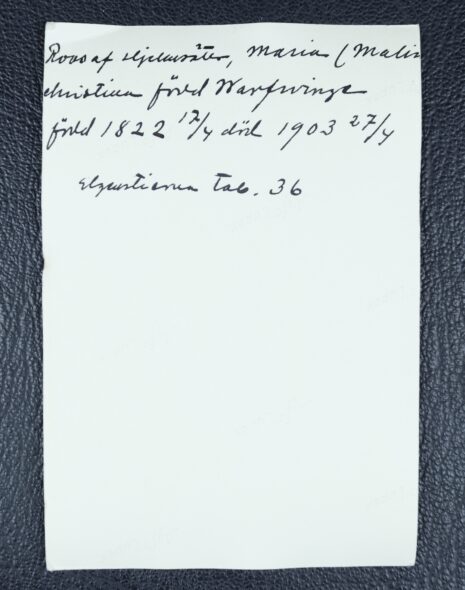 Roos af Hjelmsäter, Maria (Malin
Christina född Warfvinge
född 1822 17/4 död 1903 27/4
Elgenstierna Tab. 36